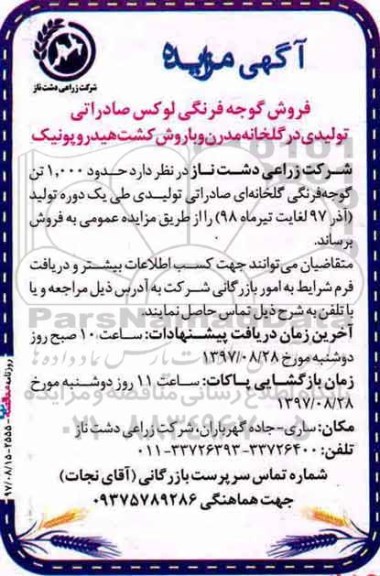 آگهی مزایده
شرکت زراعی دشت ناز
فروش گوجه فرنگی لوکس صادراتی
تولیدی در گلخانه مدرن وباروش کشت هیدروپونیک
شرکت زراعی دشت ناز در نظر دارد حدود ۱،۰۰۰ تن
گوجه‌فرنگی گلخانه‌ای صادراتی تولیدی طی یک دوره تولید
(آذر ۹۷ لغایت تیرماه ۹۸) را از طریق مزایده عمومی به فروش
برساند.
متقاضیان می‌توانند جهت کسب اطلاعات بیشتر و دریافت
فرم شرایط به امور بازرگانی شرکت به آدرس ذیل مراجعه و یا
با تلفن به شرح ذیل تماس حاصل نمایند.
آخرین زمان دریافت پیشنهادات: ساعت ۱۰ صبح روز
دوشنبه مورخ ۱۳۹۷/۰۸/۲۸
زمان بازگشایی پاکات: ساعت ۱۱ روز دوشنبه مورخ
۱۳۹۷/۰۸/۲۸
مکان: ساری-جاده گهرباران، شرکت زراعی دشت ناز
تلفن: ۳۳۷۲۶۴۰۰-۳۳۷۲۶۳۹۳-۰۱۱
شماره تماس سرپرست بازرگانی (آقای نجات)
جهت هماهنگی ۰۹۳۷۵۷۸۹۲۸۶
روزنامه مناقصه ۲۵۵۵-۹۷/۰۸/۱۵